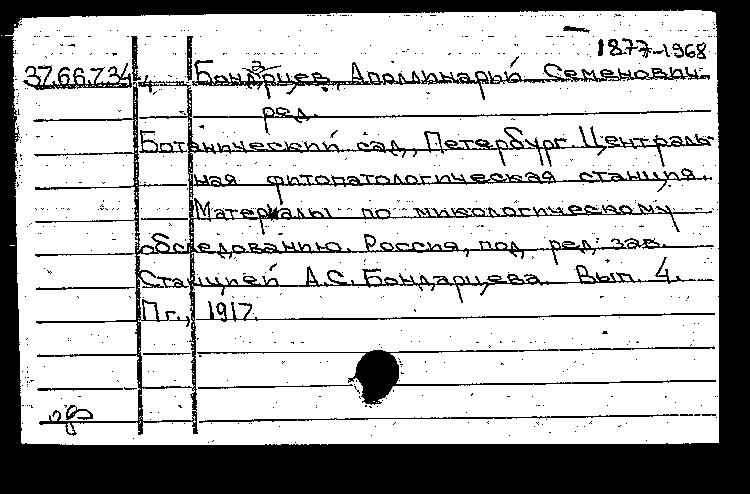 1877-1968
37.66.734 Бондарцев, Аполлинарий Семенович
ред.
Ботанический сад, Петербург Централь-
ная фитопатологическая станция.
Материалы по микологическому
обследованию. Россия, под ред. зав.
Станцией А.С. Бондарцева. Вып. 4.
Пг., 1917.